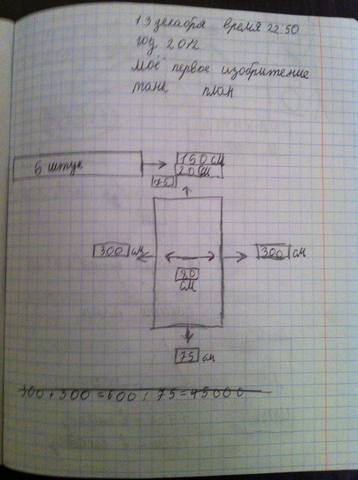 13 декабря время 22:50
год 2012
моё первое изобритение
план
5 штук
150 см
20 см
75
300 см
300 см
90
см
75 см
300+300=600 / 75=45000